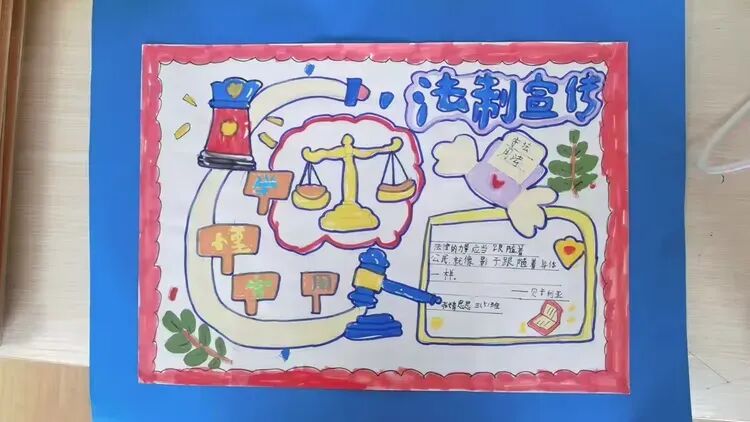 法制宣传
学
懂
守
用
法律的力量应当跟随着
公民,就像影子跟随着身体
一样。
——贝卡利亚
三(5)班